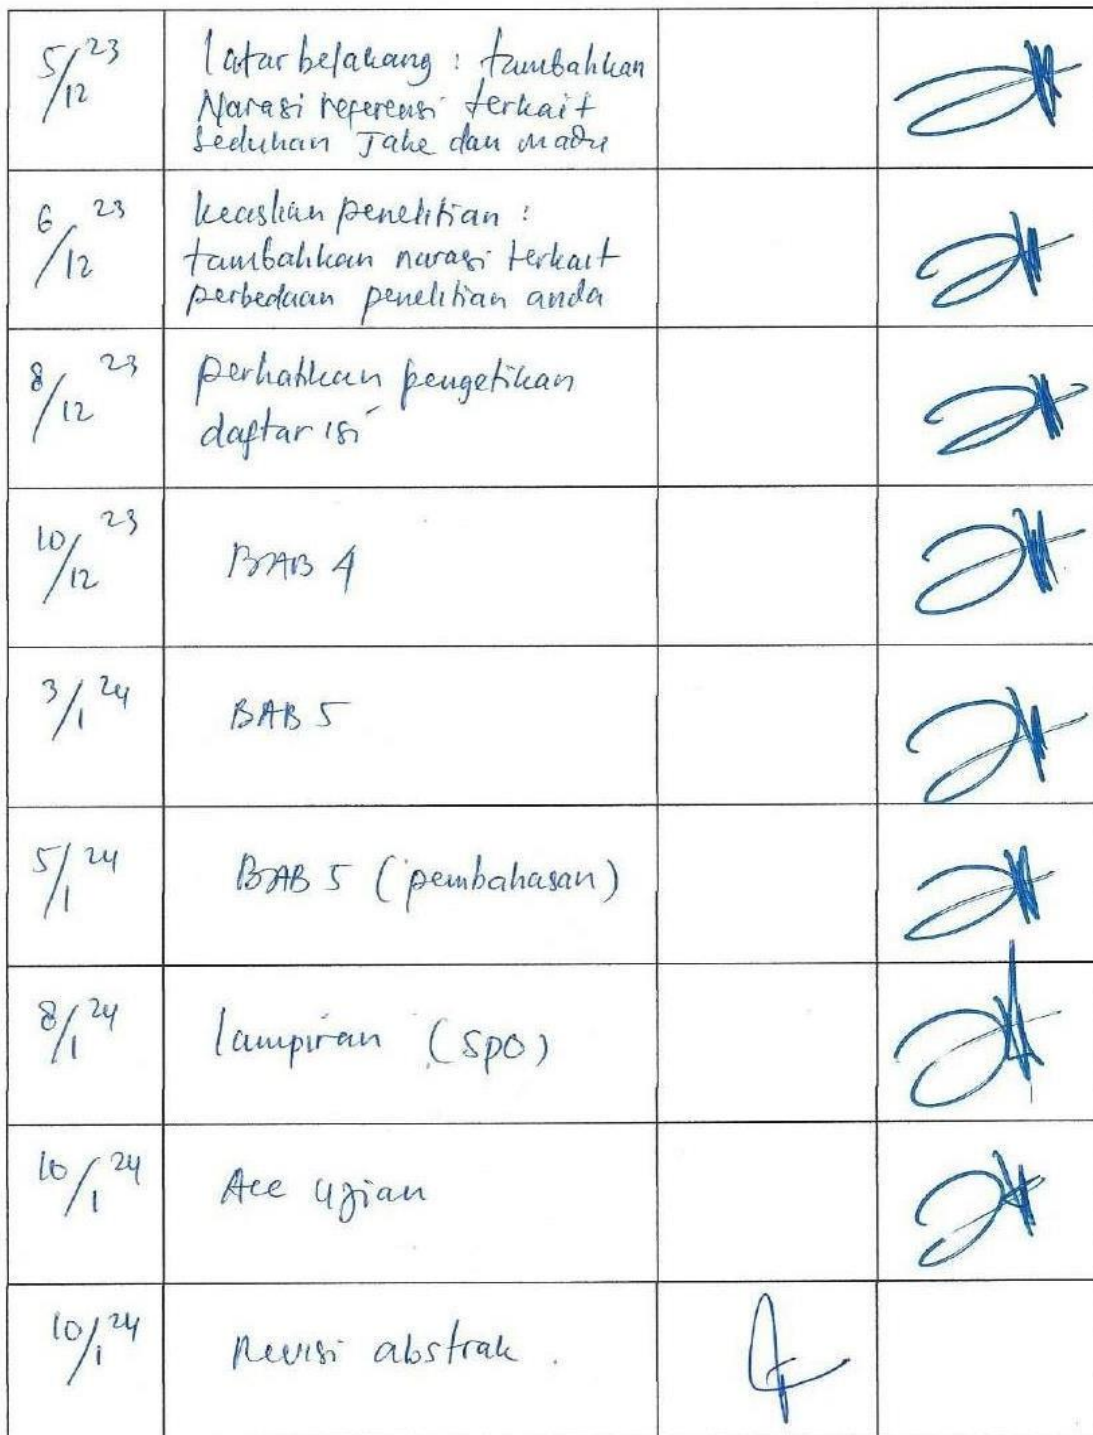 5/12 23
latar belakang : tambahkan
Narasi referensi terkait
seduhan Jahe dan madu
6/12 23
keaslian penelitian :
tambahkan narasi terkait
perbedaan penelitian anda
8/12 23
perhatikan pengetikan
daftar isi
10/12 23
BAB 4
3/1 24
BAB 5
5/1 24
BAB 5 (pembahasan)
8/1 24
lampiran (SPO)
10/1 24
Acc ujian
10/1 24
Revisi abstrak.